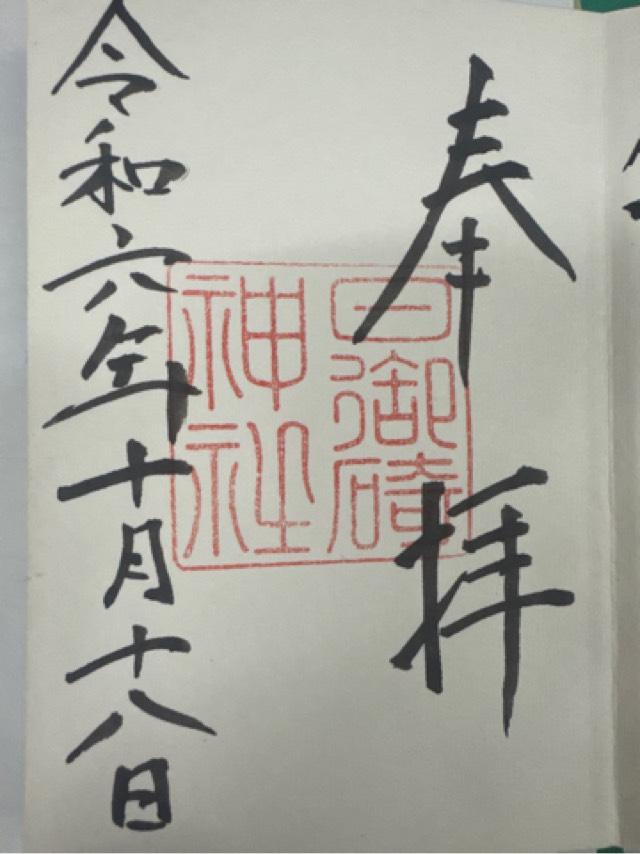 奉拝
日御碕
神社
令和六年十月十八日